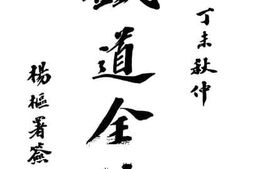 丁未秋仲
道全
楊樞署簽